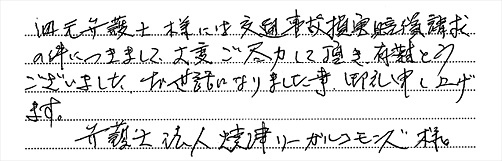 四元弁護士様には交通事故損害賠償請求
の件につきまして大変ご尽力して頂き有難とう
ございました。お世話になりました事御礼申し上げ
ます。
弁護士法人焼津リーガルコモンズ様。